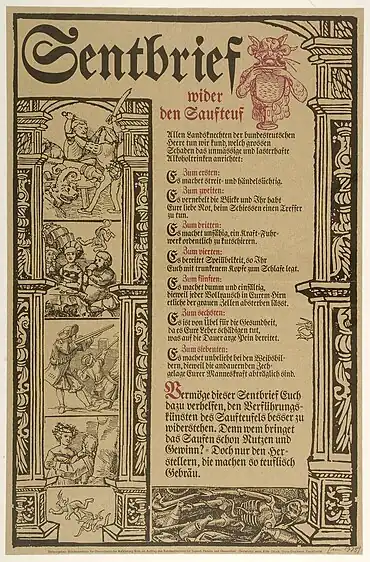 Sentbrief
wider
den Saufteuf
Allen Landsknechten der bundesteutschen
Heere tun wir kund, welch grossen
Schaden das unmässige und lasterhafte
Alkoholtrinken anrichtet:
Zum ersten:
Es machet streit- und händelsüchtig.
Zum zweiten:
Es vernebelt die Blicke und Ihr habt
Eure liebe Not, beim Schiessen einen Treffer
zu tun.
Zum dritten:
Es machet unfähig, ein Kraft-Fuhr-
werk ordentlich zu kutschieren.
Zum vierten:
Es bereitet Speiübelkeit, so Ihr
Euch mit trunkenem Kopfe zum Schlafe legt.
Zum fünften:
Es machet dumm und einfältig,
dieweil jeder Vollrausch in Eurem Hirn
etliche der grauen Zellen absterben lässt.
Zum sechsten:
Es ist von Übel für die Gesundheit,
da es Eure Leber schädigen tut,
was auf die Dauer arge Pein bereitet.
Zum siebenten:
Es machet unbeliebt bei den Weibsbil-
dern, dieweil die andauernden Zech-
gelage Eurer Manneskraft abträglich sind.
Vermöge dieser Sentbrief Euch
dazu verhelfen, den Verführungs-
künsten des Saufteufels besser zu
widerstehen. Denn wem bringet
das Saufen schon Nutzen und
Gewinn? Doch nur den Her-
stellern, die machen so teuflisch
Gebräu.